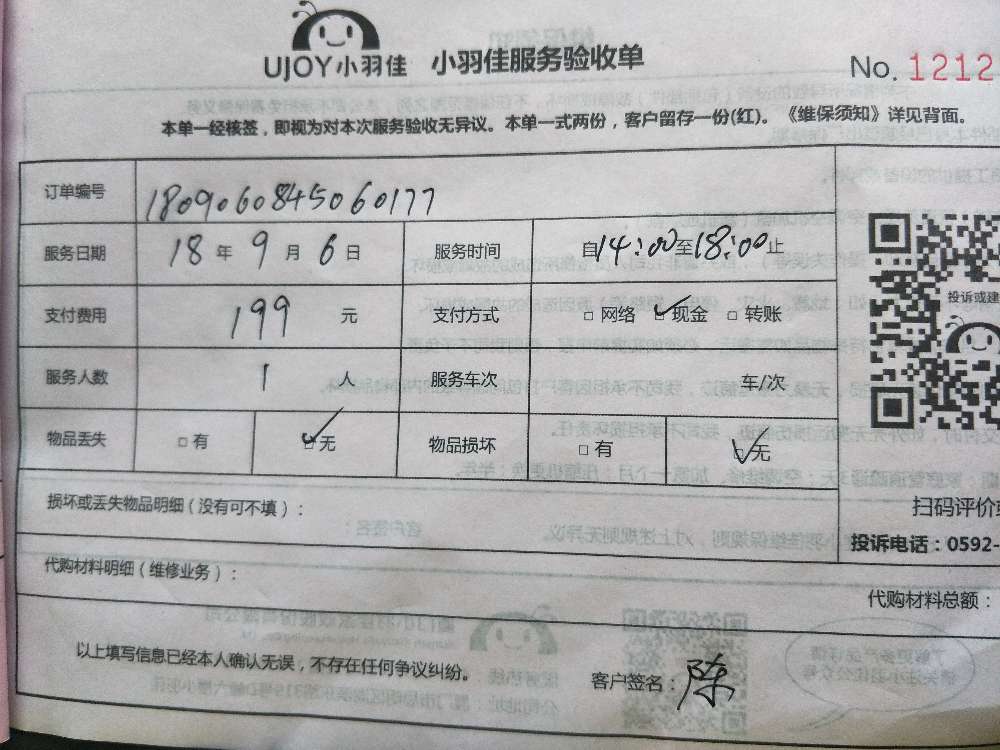 UJOY小羽佳 小羽佳服务验收单 No. 1212
本单一经核签，即视为对本次服务验收无异议。本单一式两份，客户留存一份(红)。《维保须知》详见背面。
订单编号 1809060845060177
服务日期 18 年 9 月 6 日 服务时间 自14:00至18:00止
支付费用 199 元 支付方式 □ 网络 ☑ 现金 □ 转账
投诉或建
服务人数 1 人 服务车次 车/次
物品丢失 □ 有 ☑ 无 物品损坏 □ 有 ☑ 无
损坏或丢失物品明细（没有可不填）：
扫码评价或
投诉电话：0592-
代购材料明细（维修业务）：
代购材料总额：
以上填写信息已经本人确认无误，不存在任何争议纠纷。
客户签名：陈